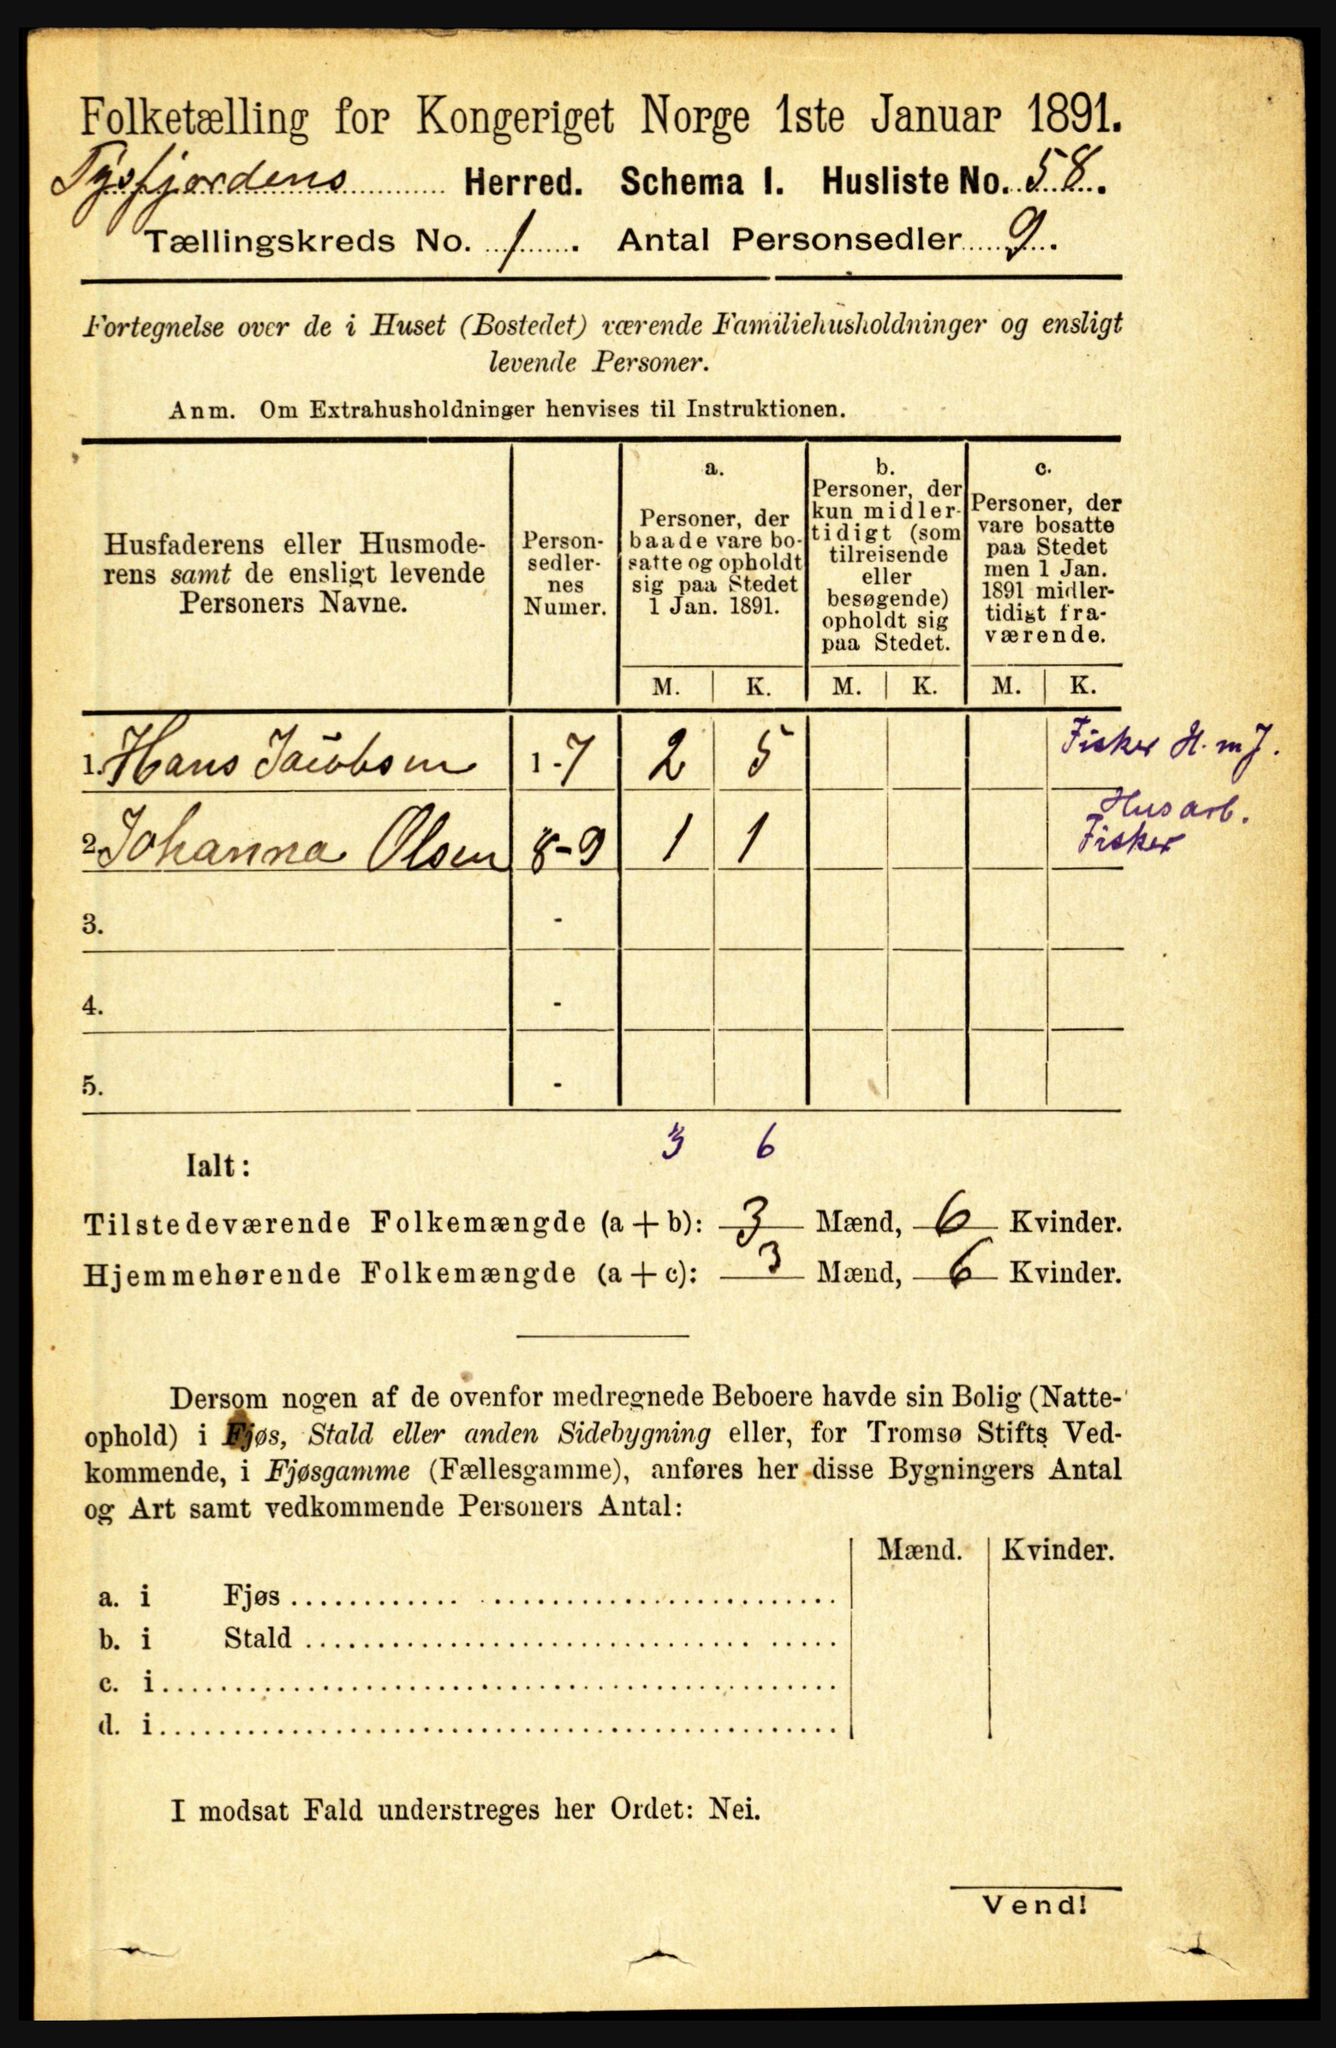 Folketælling for Kongeriget Norge 1ste Januar 1891.
Tysfjordens Herred. Schema I. Husliste No. 58.
Tællingskreds No. 1. Antal Personsedler 9.
Fortegnelse over de i Huset (Bostedet) værende Familiehusholdninger og ensligt
levende Personer.
Anm. Om Extrahusholdninger henvises til Instruktionen.
Husfaderens eller Husmode-
rens samt de ensligt levende
Personers Navne.
Person-
sedler-
nes
Numer.
a.
Personer, der
baade vare bo-
satte og opholdt
sig paa Stedet
1 Jan. 1891.
b.
Personer, der
kun midler-
tidigt (som
tilreisende
eller
besøgende)
opholdt sig
paa Stedet.
c.
Personer, der
vare bosatte
paa Stedet
men 1 Jan.
1891 midler-
tidigt fra-
værende.
M. K. M. K. M. K.
1. Hans Jacobsen 1-7 2 5 Fisker H. m J.
2. Johanna Olsen 8-9 1 1 Husarb.
Fisker
3. -
4. -
5. -
3 6
Ialt:
Tilstedeværende Folkemængde (a + b): 3 Mænd, 6 Kvinder.
Hjemmehørende Folkemængde (a + c): 3 Mænd, 6 Kvinder.
Dersom nogen af de ovenfor medregnede Beboere havde sin Bolig (Natte-
ophold) i Fjøs, Stald eller anden Sidebygning eller, for Tromsø Stifts Ved-
kommende, i Fjøsgamme (Fællesgamme), anføres her disse Bygningers Antal
og Art samt vedkommende Personers Antal:
Mænd. Kvinder.
a. i Fjøs
b. i Stald
c. i
d. i
I modsat Fald understreges her Ordet: Nei.
Vend!